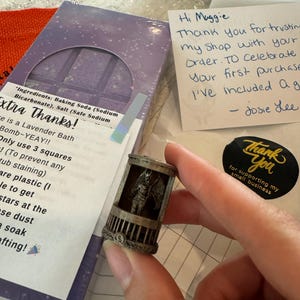 *Ingredients: Baking Soda (Sodium
Bicarbonate), Salt (Safe Sodium
Extra Thanks!
is a Lavender Bath
Bomb-YEAY!!
Only use 3 squares
(To prevent any
tub staining)
are plastic (I
le to get
stars at the
se dust
a soak
afting!
Hi Maggie
Thank you for trusting
my shop with your
order. To celebrate
your first purchase
I've included a g
- Josie Lee
Thank
You
for supporting my
small business